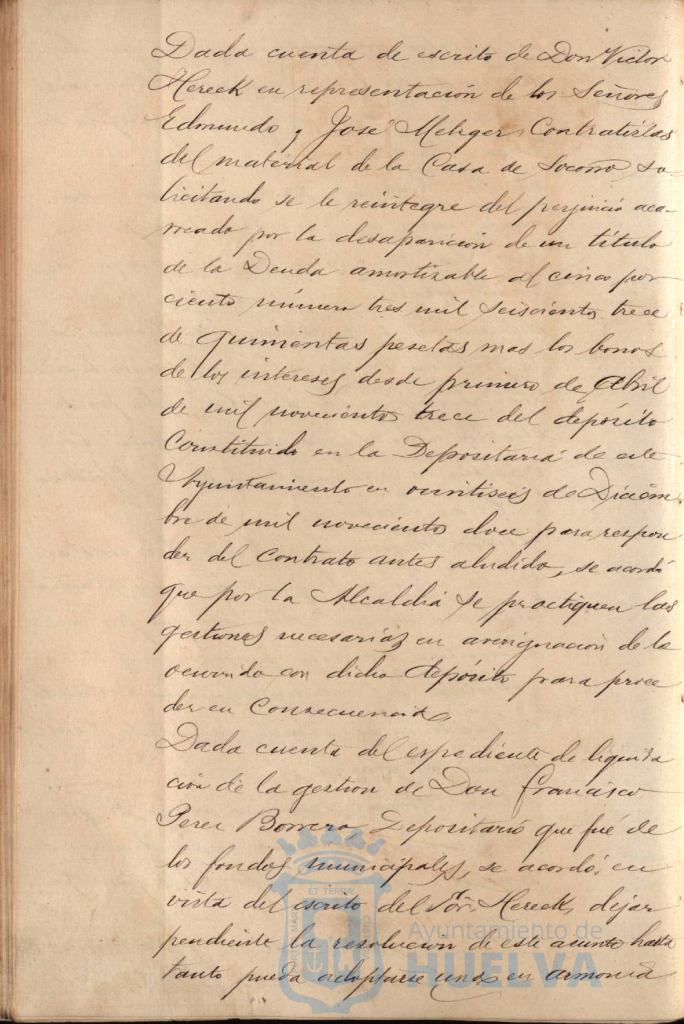 Dada cuenta de escrito de Don Victor
Hereck en representación de los Señores
Edmundo y José Metzger Contratistas
del material de la Casa de Socorro so
licitando se le reintegre del perjuicio aca-
rreado por la desaparición de un título
de la Deuda amortizable al cinco por
ciento número tres mil seiscientos trece
de quinientas pesetas mas los bonos
de los intereses desde primero de Abril
de mil novecientos trece del depósito
Constituido en la Depositaria de este
Ayuntamiento en veintiseis de Diciem
bre de mil novecientos doce para respon
der del contrato antes aludido, se acordó
que por la Alcaldia se practiquen las
gestiones necesarias en averiguación de lo
ocurrido con dicho depósito para proce
der en Consecuencia.
Dada cuenta del espediente de liquida
ción de la gestion de Don Francisco
Perez Borrero, Depositario que fué de
los fondos municipales, se acordó, en
vista del escrito del Sor. Hereck, dejar
pendiente la resolucion de este asunto hasta
tanto pueda adoptarse una en armonia
Ayuntamiento de
HUELVA